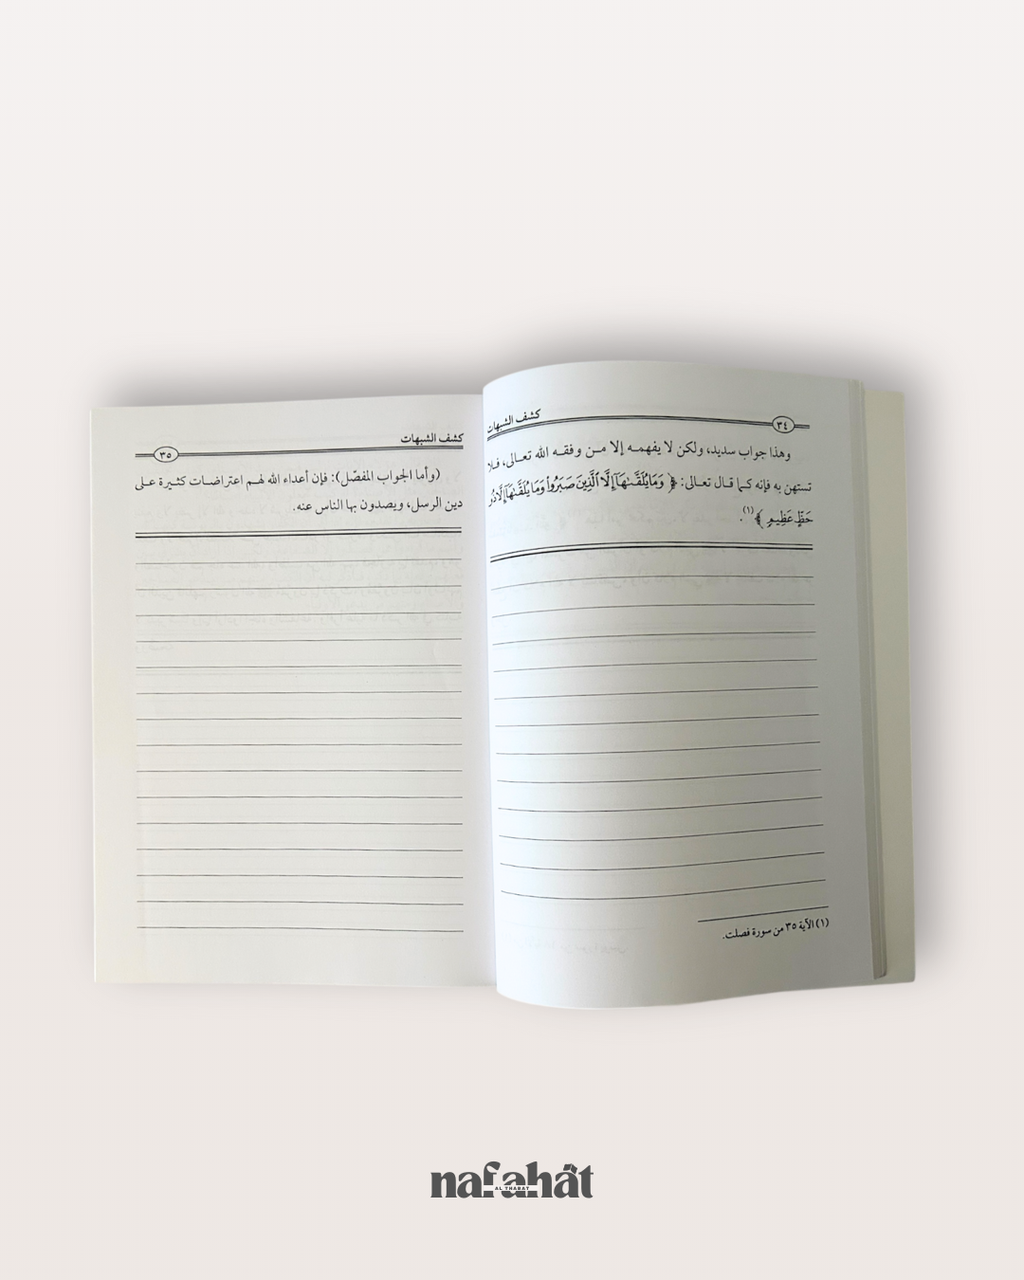 كشف الشبهات
٣٤
وهذا جواب سديد، ولكن لا يفهمه إلا من وفقه الله تعالى، فلا
تستهن به فإنه كما قال تعالى: ﴿ وَمَا يُلَقَّىٰهَآ إِلَّا ٱلَّذِينَ صَبَرُواْ وَمَا يُلَقَّىٰهَآ إِلَّا ذُو
حَظٍّ عَظِيمٍ ﴾(١).
(١) الآية ٣٥ من سورة فصلت.
كشف الشبهات
٣٥
(وأما الجواب المفصّل): فإن أعداء الله لهم اعتراضات كثيرة على
دين الرسل، ويصدون بها الناس عنه.
nafahât
AL THABAT